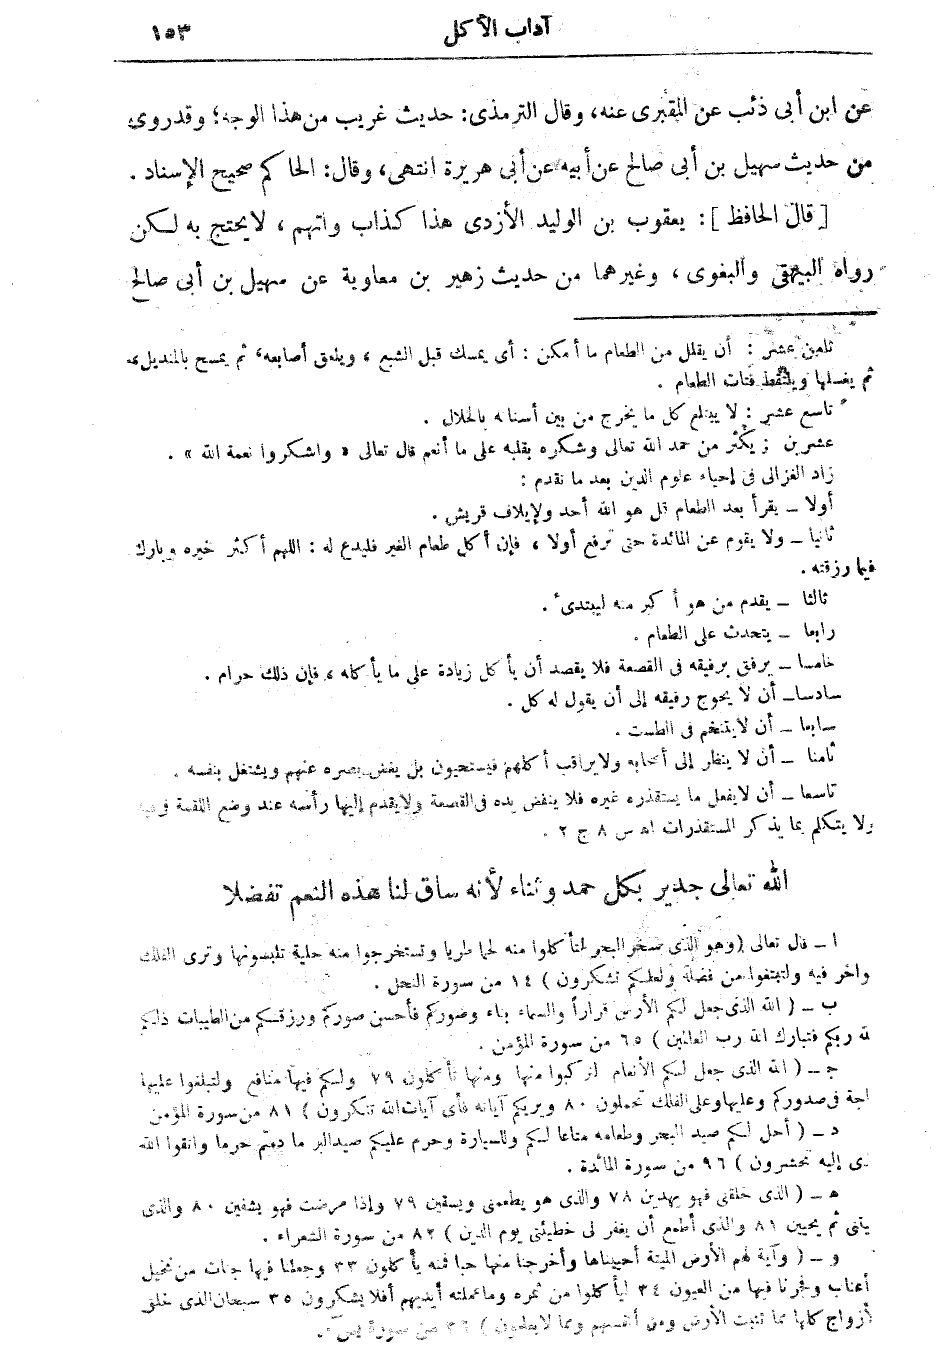 آداب الأكل ١٥٣
عن ابن أبى ذئب عن المقبرى عنه، وقال الترمذى: حديث غريب من هذا الوجه؛ وقدروى
من حديث سهيل بن أبى صالح عن أبيه عن أبى هريرة انتهى، وقال: الحاكم صحيح الإسناد.
[قال الحافظ]: يعقوب بن الوليد الأزدى هذا كذاب واتهم، لا يحتج به لكن
رواه البيهقى والبغوى، وغيرهما من حديث زهير بن معاوية عن سهيل بن أبى صالح
ثامن عشر: أن يقلل من الطعام ما أمكن: أى يمسك قبل الشبع، ويلعق أصابعه، ثم يمسح بالمنديل،
ثم يغسلها ويلتقط فتات الطعام.
تاسع عشر: لا يبتلع كل ما يخرج من بين أسنانه بالخلال.
عشرين يكثر من حمد الله تعالى وشكره بقلبه على ما أنعم قال تعالى «واشكروا نعمة الله».
زاد الغزالى فى إحياء علوم الدين بعد ما تقدم:
أولا ــ يقرأ بعد الطعام قل هو الله أحد ولإيلاف قريش.
ثانيا ــ ولا يقوم عن المائدة حتى ترفع أولا، فإن أكل طعام الغير فليدع له: اللهم أكثر خيره وبارك
فيما رزقته.
ثالثا ــ يقدم من هو أكبر منه ليبتدىء.
رابعا ــ يتحدث على الطعام.
خامسا ــ يرفق برفيقه فى القصعة فلا يقصد أن يأكل زيادة على ما يأكله، فإن ذلك حرام.
سادسا ــ أن لا يحوج رفيقه إلى أن يقول له كل.
سابعا ــ أن لا يتنخم فى الطست.
ثامنا ــ أن لا ينظر إلى أصحابه ولا يراقب أكلهم فيستحيون بل يغض بصره عنهم ويشتغل بنفسه.
تاسعا ــ أن لا يفعل ما يستقذره غيره فلا ينفض يده فى القصعة ولا يقدم إليها رأسه عند وضع اللقمة فى فيه
ولا يتكلم بما يذكر المستقذرات اهـ س ٨ ج ٢.
الله تعالى جدير بكل حمد وثناء لأنه ساق لنا هذه النعم تفضلا
ا ــ قال تعالى (وهو الذى سخر البحر لتأكلوا منه لحما طريا وتستخرجوا منه حلية تلبسونها وترى الفلك
واخر فيه ولتبتغوا من فضله ولعلكم تشكرون) ١٤ من سورة النحل.
ب ــ (الله الذى جعل لكم الأرض قراراً والسماء بناء وصوركم فأحسن صوركم ورزقكم من الطيبات ذلكم
لله ربكم فتبارك الله رب العالمين) ٦٥ من سورة المؤمن.
جـ ــ (الله الذى جعل لكم الأنعام لتركبوا منها ومنها تأكلون ٧٩ ولكم فيها منافع ولتبلغوا عليها
اجة فى صدوركم وعليها وعلى الفلك تحملون ٨٠ ويريكم آياته فأى آيات الله تنكرون) ٨١ من سورة المؤمن
د ــ (أحل لكم صيد البحر وطعامه متاعا لكم وللسيارة وحرم عليكم صيد البر ما دمتم حرما واتقوا الله
ذى إليه تحشرون) ٩٦ من سورة المائدة.
هـ ــ (الذى خلقنى فهو يهدين ٧٨ والذى هو يطعمنى ويسقين ٧٩ وإذا مرضت فهو يشفين ٨٠ والذى
يتنى ثم يحيين ٨١ والذى أطمع أن يغفر لى خطيئتى يوم الدين) ٨٢ من سورة الشعراء.
و ــ (وآية لهم الأرض الميتة أحييناها وأخرجنا منها حبا فمنه يأكلون ٣٣ وجعلنا فيها جنات من نخيل
أعناب وفجرنا فيها من العيون ٣٤ ليأكلوا من ثمره وما عملته أيديهم أفلا يشكرون ٣٥ سبحان الذى خلق
لأزواج كلها مما تنبت الأرض ومن أنفسهم ومما لا يعلمون) ٣٦ من سورة يس.